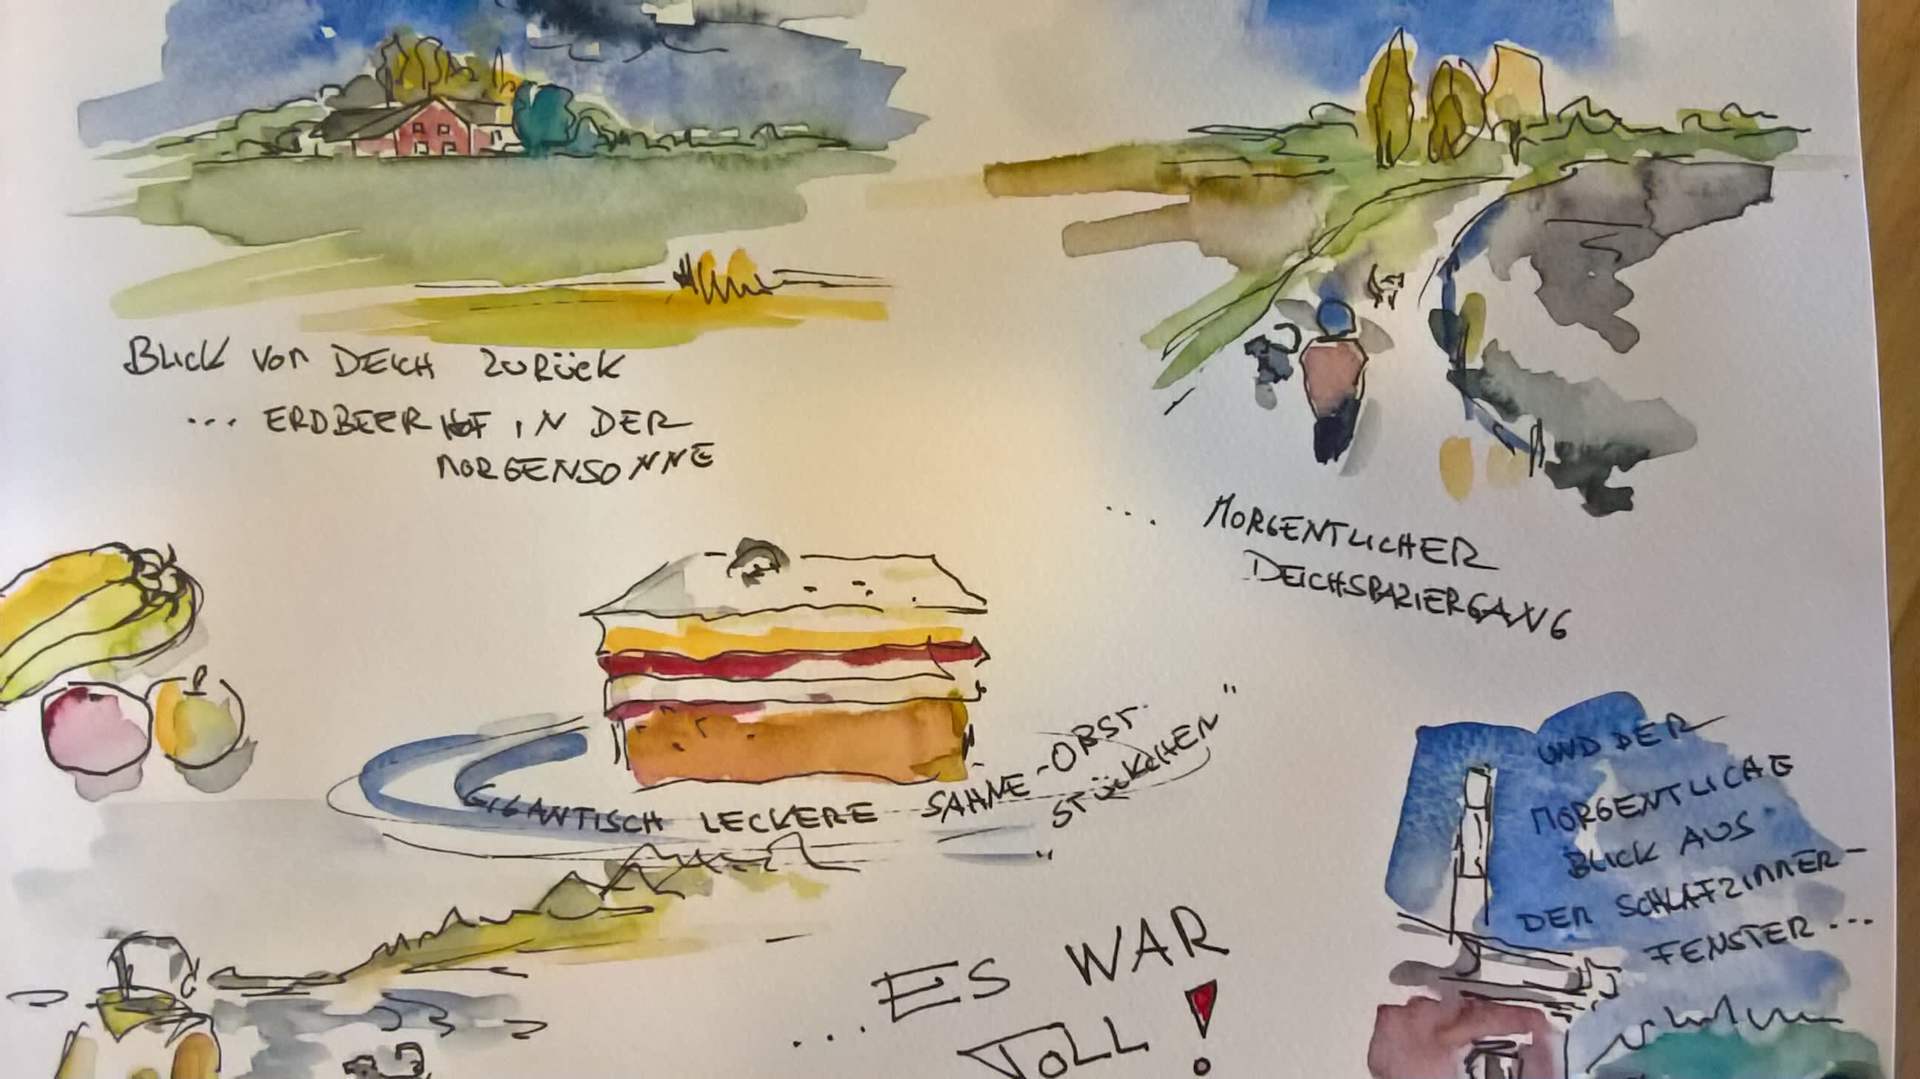 BLICK VOM DEICH ZURÜCK
... ERDBEERHOF IN DER
MORGENSONNE
... MORGENTLICHER
DEICHSPAZIERGANG
GIGANTISCH LECKERE SAHNE-OBST-
"STÜCKCHEN"
UND DER
MORGENTLICHE
BLICK AUS
DEM SCHLAFZIMMER-
FENSTER...
...ES WAR
TOLL!